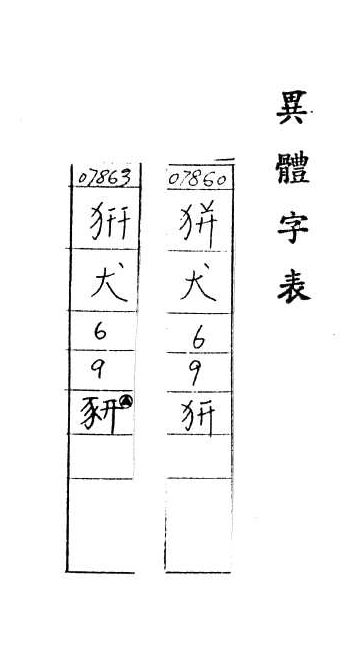 異體字表
07860
犬
6
9
07863
犬
6
9
豜